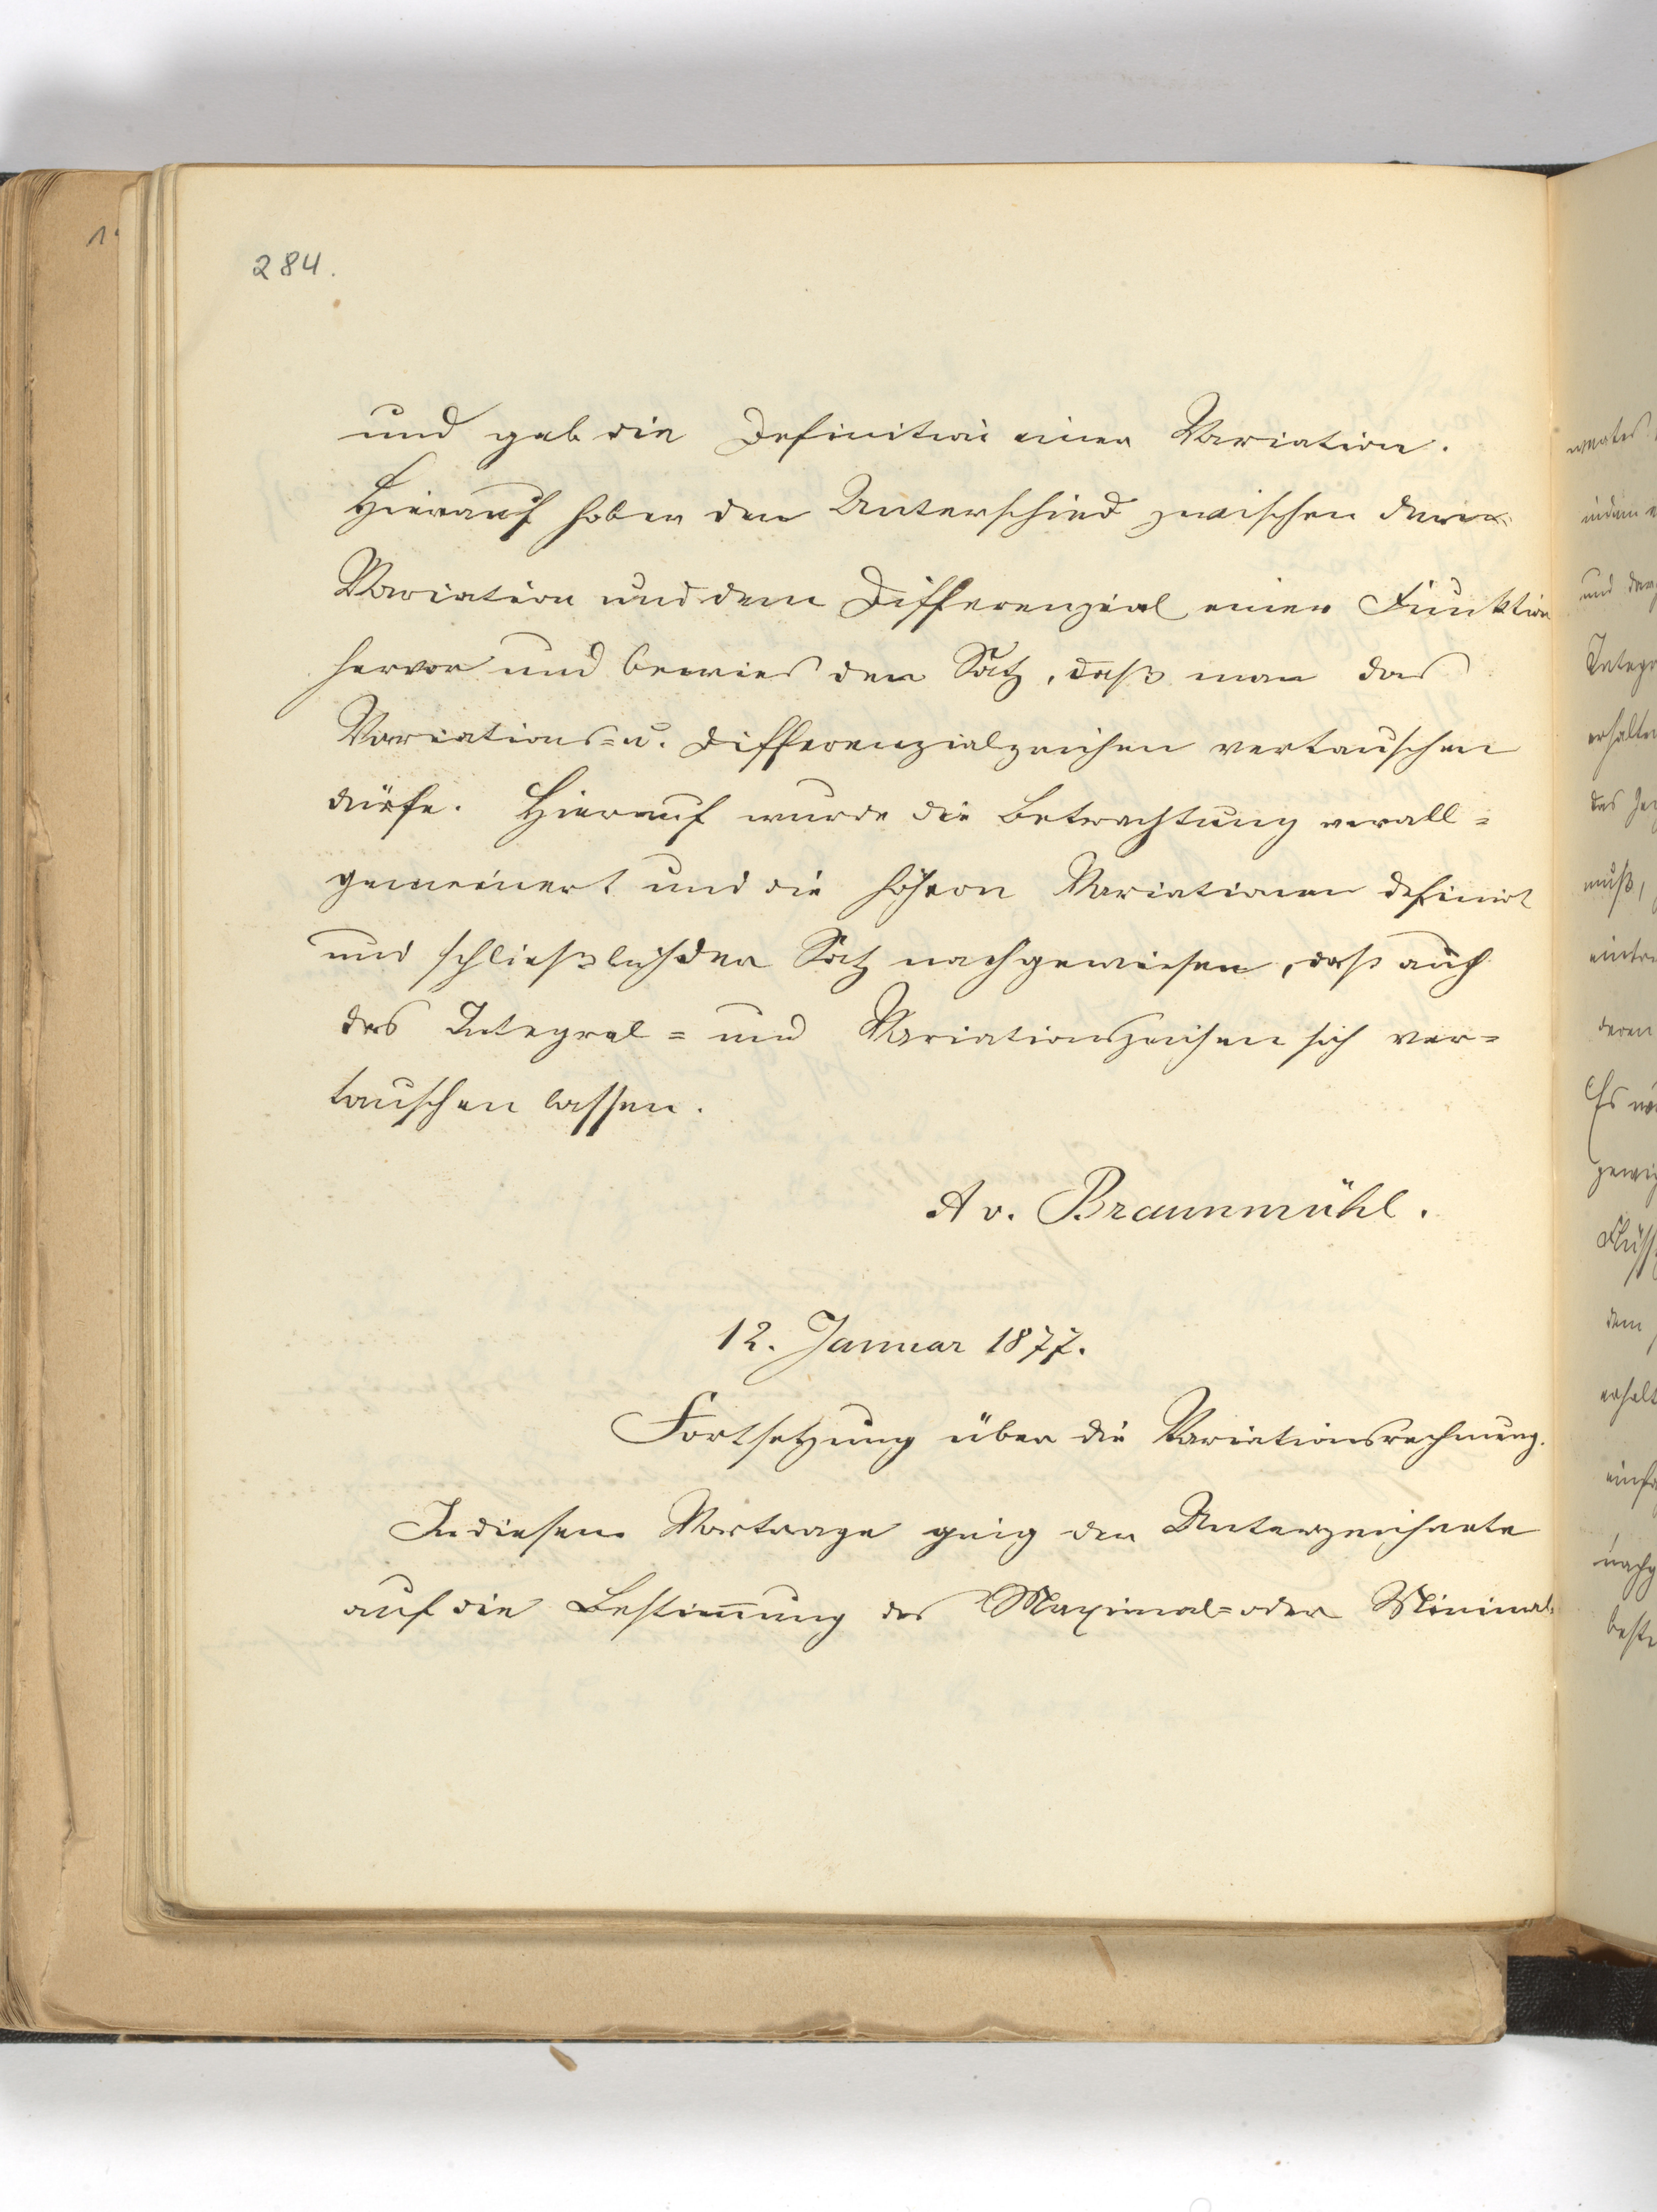 284.
und gab die Definition einer Variation.
Hierauf hob er den Unterschied zwischen der
Variation und dem Differenzial einer Funktion
hervor und bewies den Satz, daß man das
Variations= u. Differenzialzeichen vertauschen
dürfe. Hierauf wurde die Betrachtung verall=
gemeinert und die höhern Variationen definirt
und schließlich der Satz nachgewiesen, daß auch
das Integral= und Variationszeichen sich ver=
tauschen lassen.
A v. Braunmühl.
12. Januar 1877.
Fortsetzung über die Variationsrechnung.
In diesem Vortrage ging der Unterzeichnete
auf die Bestimmung des Maximal= oder Minimal=
indem
und
erhalten
das
muß,
deren
Es
dem